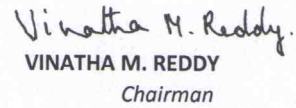 Vinatha M. Reddy.
VINATHA M. REDDY
Chairman